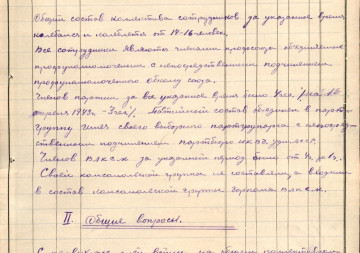 Общий состав коллектива сотрудников за указанное время
колебался и колеблется от 14-16 человек.
Все сотрудники являются членами профсоюза объединены
профуполномоченным с непосредственным подчинением
профуполномоченного Обкому союза.
Членов партии за все указанное время было 4чел. /на 1
апреля 1943г. - 3чел/. Партийный состав объединен в парт-
группу имея своего выборного партгрупорга с непосред-
ственным подчинением партбюро
Членов ВЛКСМ за указанный период было от 4х до
Своей комсомольской группы не составляли, а входили
в состав комсомольской группы горкома ВЛКСМ.
II. Общие вопросы.
С первых же дней войны на